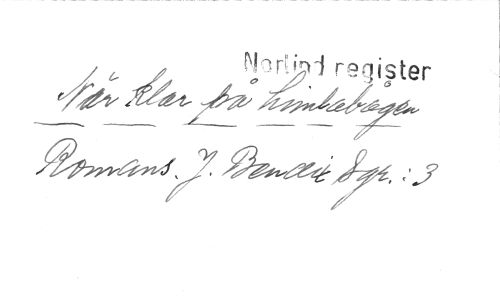 Norlind register
När klar på himlabågen
Romans. J. Bendix Sgr. : 3